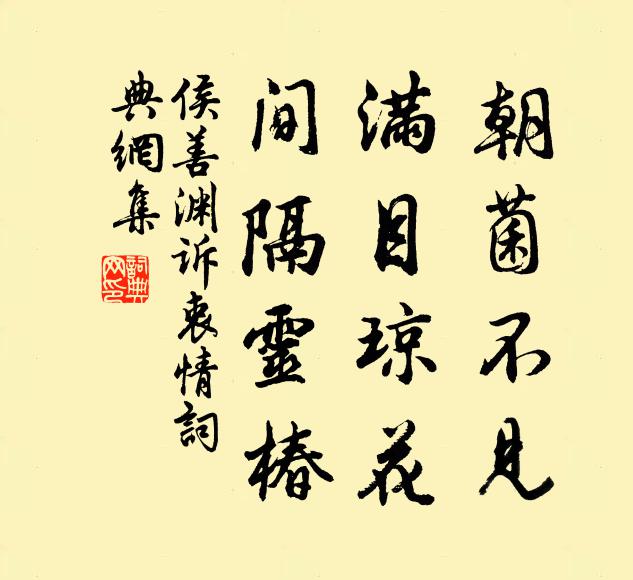 朝菌不見
满目琼花
间隔靈椿
侯善渊诉衷情詞
典網集
詞典网印